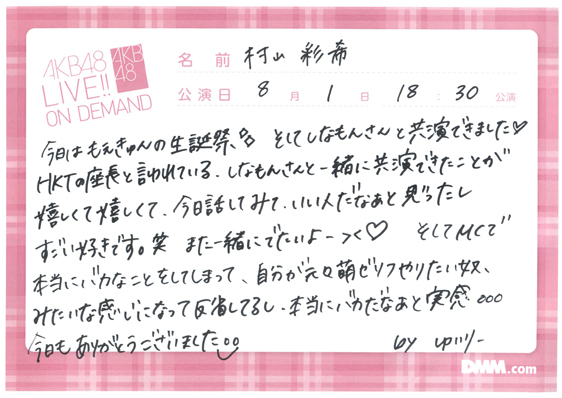 AKB48
LIVE!!
ON DEMAND
AKB
48
名前 村山 彩希
公演日 8月 1日 18:30公演
今日はもえきゅんの生誕祭、そしてしなもんさんと共演できました♡
HKTの座長と言われている、しなもんさんと一緒に共演できたことが
嬉しくて嬉しくて、今日話してみて、いい人だなぁと思ったし
すごい好きです。笑 また一緒にでたいよー ><♡ そしてMCで
本当にバカなことをしてしまって、自分が元々萌ゼリフやりたい奴、
みたいな感じになって反省してるし、本当にバカだなぁと実感。。。
今日もありがとうございました
by ゆいりー
DMM.com